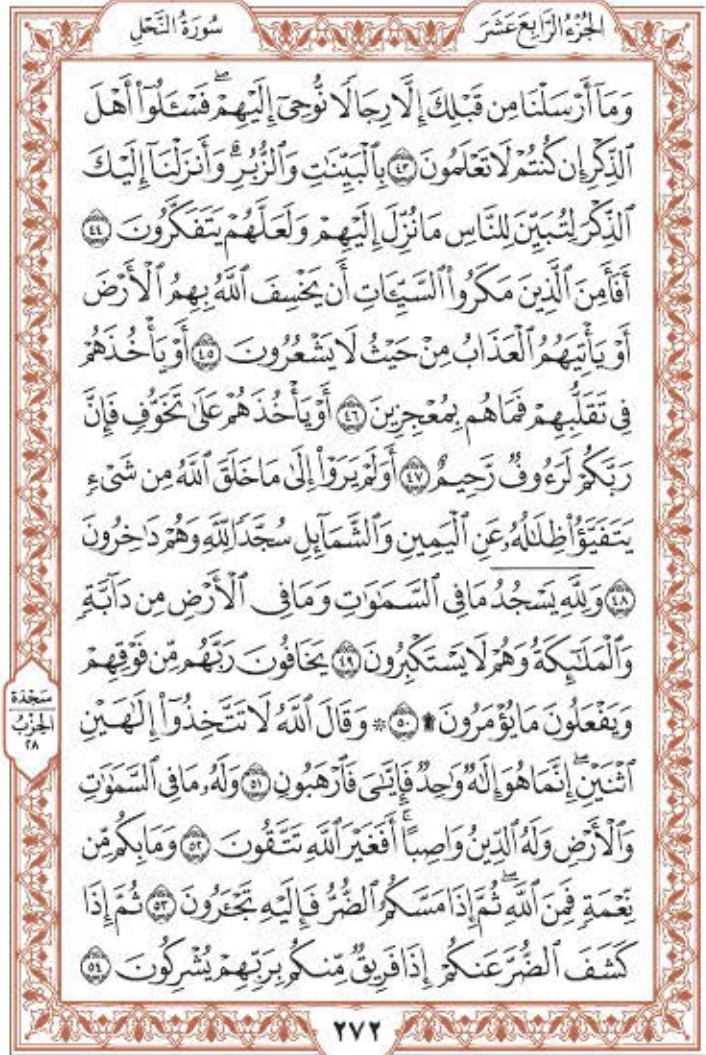 الجُزْءُ الرَّابِعَ عَشَرَ
سُورَةُ النَّحْلِ
وَمَآ أَرۡسَلۡنَا مِن قَبۡلِكَ إِلَّا رِجَالٗا نُّوحِيٓ إِلَيۡهِمۡۖ فَسۡـَٔلُوٓاْ أَهۡلَ
ٱلذِّكۡرِ إِن كُنتُمۡ لَا تَعۡلَمُونَ ٤٣ بِٱلۡبَيِّنَٰتِ وَٱلزُّبُرِۗ وَأَنزَلۡنَآ إِلَيۡكَ
ٱلذِّكۡرَ لِتُبَيِّنَ لِلنَّاسِ مَا نُزِّلَ إِلَيۡهِمۡ وَلَعَلَّهُمۡ يَتَفَكَّرُونَ ٤٤
أَفَأَمِنَ ٱلَّذِينَ مَكَرُواْ ٱلسَّيِّـَٔاتِ أَن يَخۡسِفَ ٱللَّهُ بِهِمُ ٱلۡأَرۡضَ
أَوۡ يَأۡتِيَهُمُ ٱلۡعَذَابُ مِنۡ حَيۡثُ لَا يَشۡعُرُونَ ٤٥ أَوۡ يَأۡخُذَهُمۡ
فِي تَقَلُّبِهِمۡ فَمَا هُم بِمُعۡجِزِينَ ٤٦ أَوۡ يَأۡخُذَهُمۡ عَلَىٰ تَخَوُّفٖ فَإِنَّ
رَبَّكُمۡ لَرَءُوفٞ رَّحِيمٌ ٤٧ أَوَلَمۡ يَرَوۡاْ إِلَىٰ مَا خَلَقَ ٱللَّهُ مِن شَيۡءٖ
يَتَفَيَّؤُاْ ظِلَٰلُهُۥ عَنِ ٱلۡيَمِينِ وَٱلشَّمَآئِلِ سُجَّدٗا لِّلَّهِ وَهُمۡ دَٰخِرُونَ
٤٨ وَلِلَّهِۤ يَسۡجُدُۤ مَا فِي ٱلسَّمَٰوَٰتِ وَمَا فِي ٱلۡأَرۡضِ مِن دَآبَّةٖ
وَٱلۡمَلَٰٓئِكَةُ وَهُمۡ لَا يَسۡتَكۡبِرُونَ ٤٩ يَخَافُونَ رَبَّهُم مِّن فَوۡقِهِمۡ
وَيَفۡعَلُونَ مَا يُؤۡمَرُونَ۩ ٥٠ ۞ وَقَالَ ٱللَّهُ لَا تَتَّخِذُوٓاْ إِلَٰهَيۡنِ
ٱثۡنَيۡنِۖ إِنَّمَا هُوَ إِلَٰهٞ وَٰحِدٞ فَإِيَّٰيَ فَٱرۡهَبُونِ ٥١ وَلَهُۥ مَا فِي ٱلسَّمَٰوَٰتِ
وَٱلۡأَرۡضِ وَلَهُ ٱلدِّينُ وَاصِبًاۚ أَفَغَيۡرَ ٱللَّهِ تَتَّقُونَ ٥٢ وَمَا بِكُم مِّن
نِّعۡمَةٖ فَمِنَ ٱللَّهِۖ ثُمَّ إِذَا مَسَّكُمُ ٱلضُّرُّ فَإِلَيۡهِ تَجۡـَٔرُونَ ٥٣ ثُمَّ إِذَا
كَشَفَ ٱلضُّرَّ عَنكُمۡ إِذَا فَرِيقٞ مِّنكُم بِرَبِّهِمۡ يُشۡرِكُونَ ٥٤
سَجْدَة
الحِزْبُ
٢٨
٢٧٢